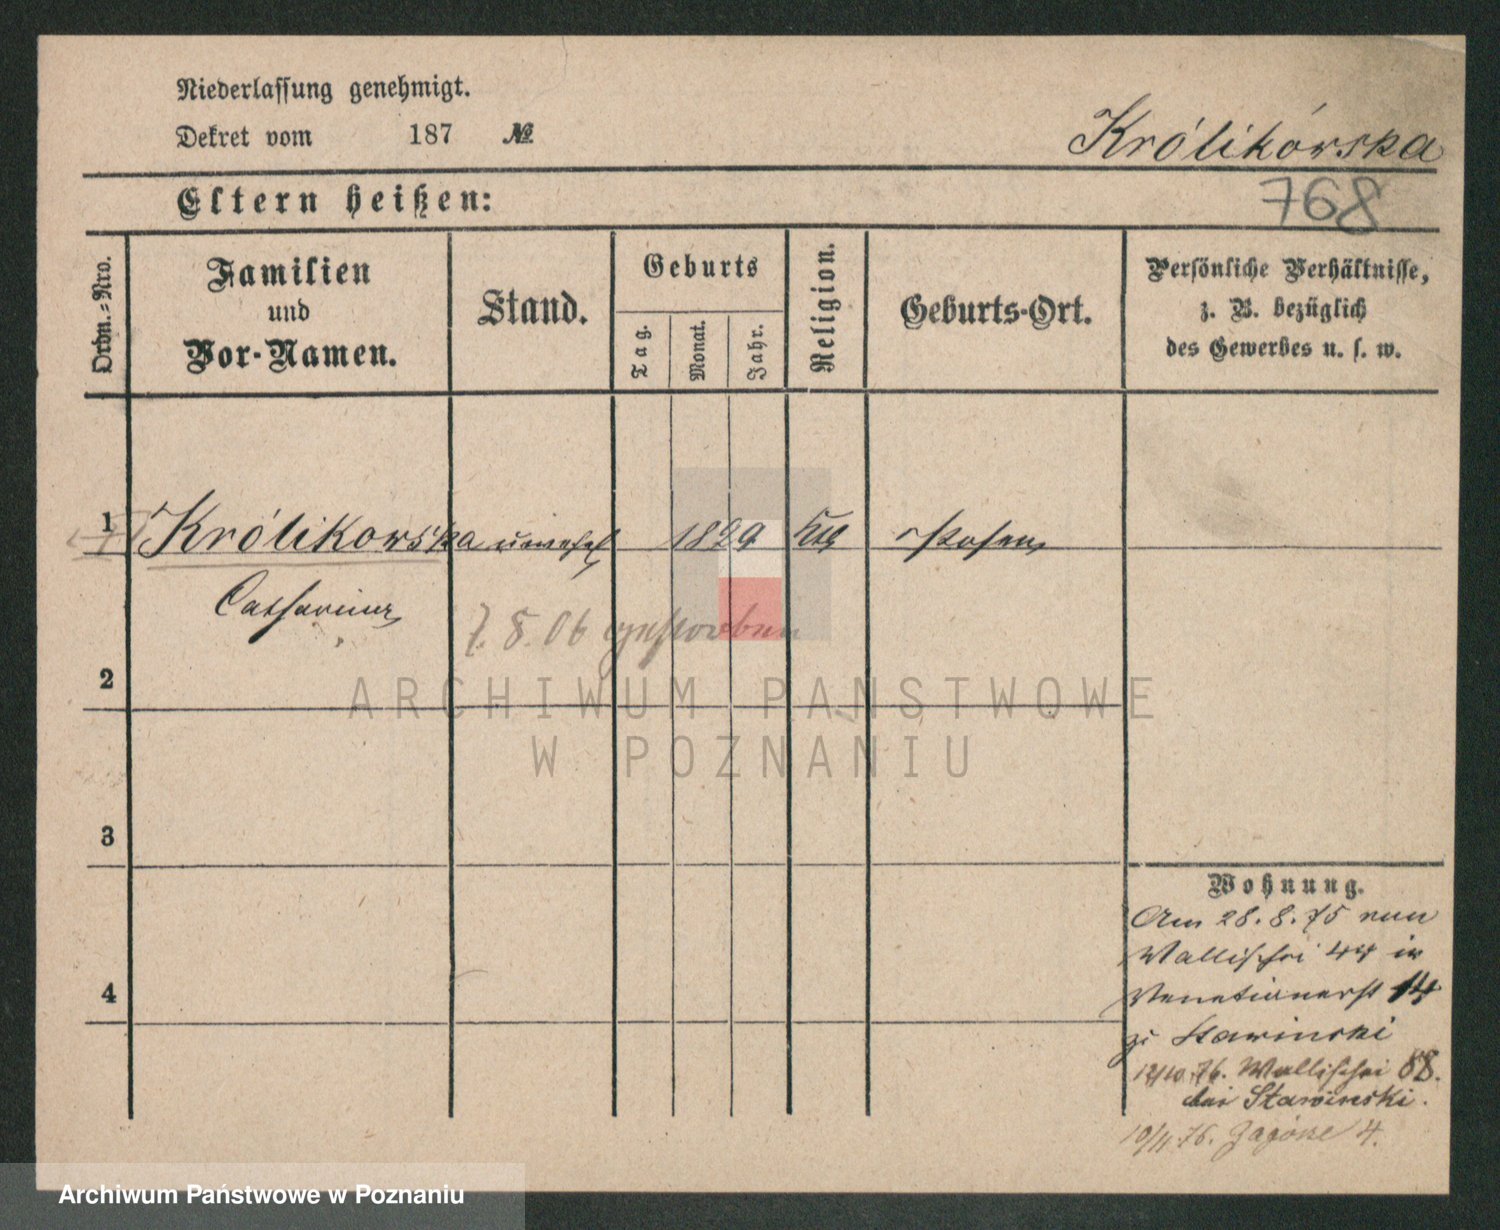 Niederlassung genehmigt.
Dekret vom 187 №
Królikówska
Eltern heißen:
768
Ordn.-Nro.
Familien
und
Vor-Namen.
Stand.
Geburts
Tag.
Monat.
Jahr.
Religion.
Geburts-Ort.
Persönliche Verhältnisse,
z. B. bezüglich
des Gewerbes u. s. w.
1 Królikowska unverehel 1829 kth Posen
Catharina
7. 8. 06 gestorben
2
ARCHIWUM PAŃSTWOWE
W POZNANIU
3
Wohnung.
Am 28. 8. 75 von
Wallischei 44 in
Venetianerst 14
zu Stawinski
12/10. 76. Wallischei 88.
bei Stawinski.
10/11. 76. Zagórze 4.
4
Archiwum Państwowe w Poznaniu